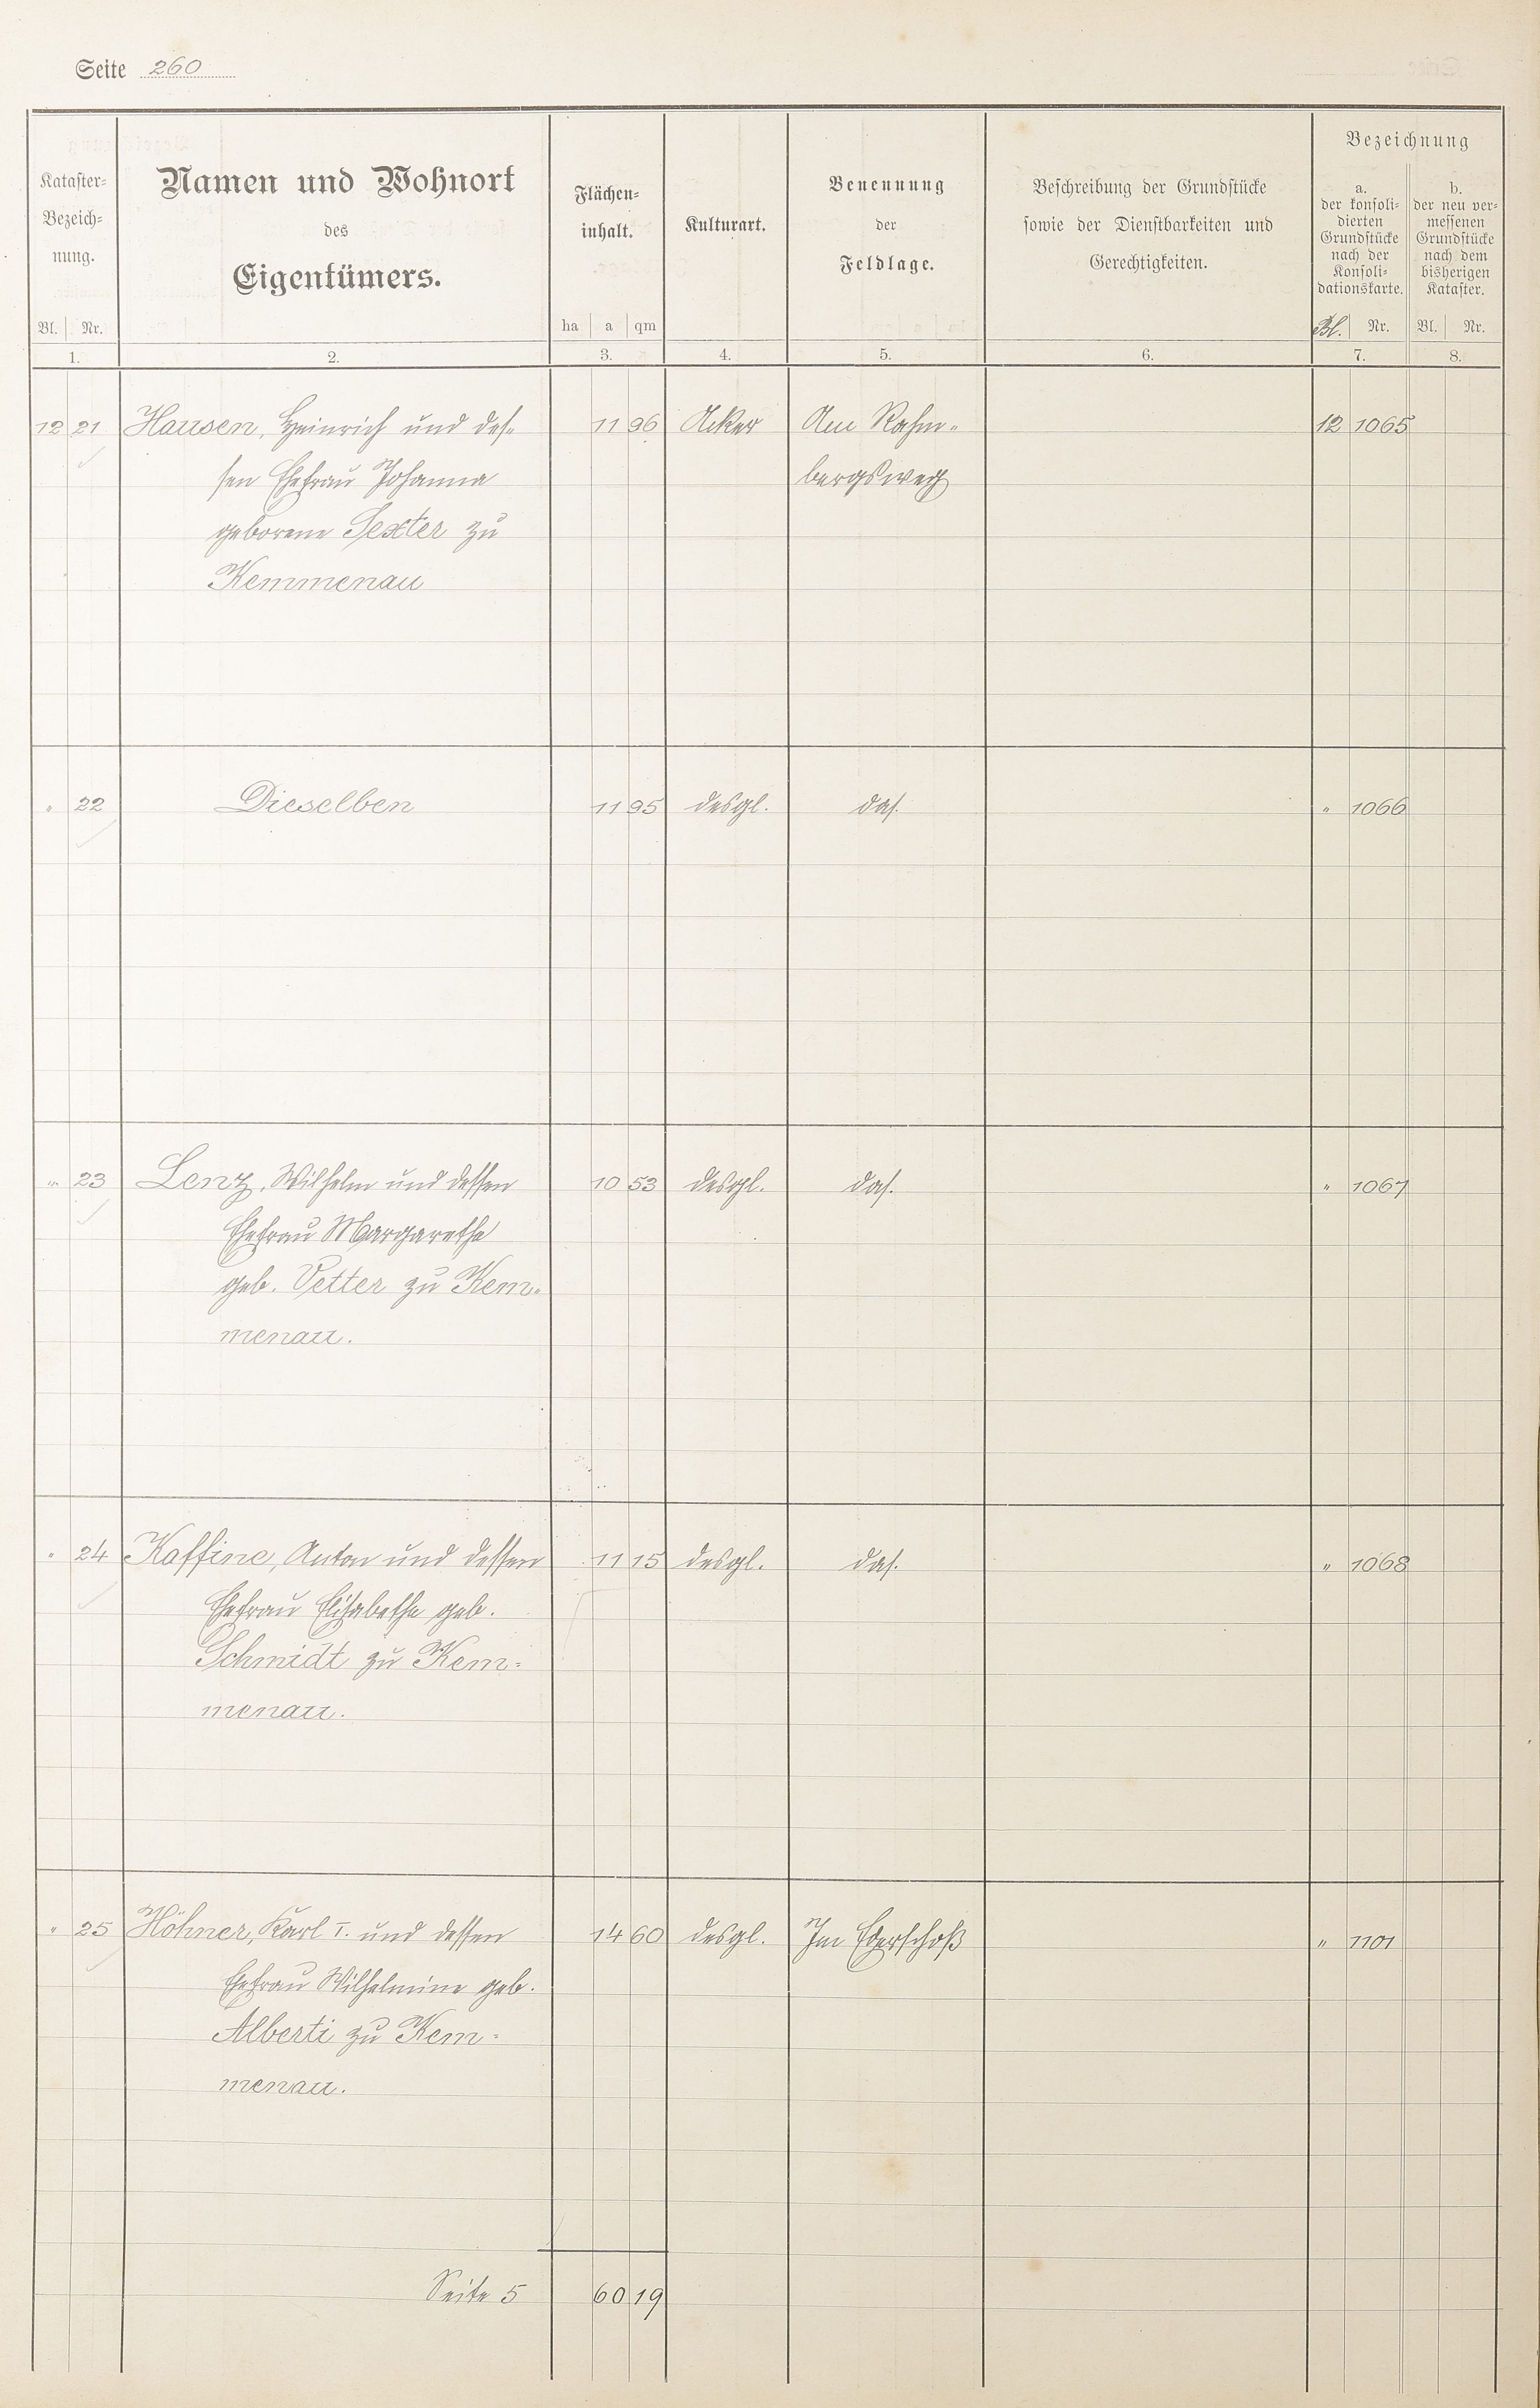 Seite 260
Kataster-
Bezeich-
nung.
Bl. Nr.
1.
Namen und Wohnort
des
Eigentümers.
2.
Flächen-
inhalt.
ha a qm
3.
Kulturart.
4.
Benennung
der
Feldlage.
5.
Beschreibung der Grundstücke
sowie der Dienstbarkeiten und
Gerechtigkeiten.
6.
Bezeichnung
a.
der konsoli-
dierten
Grundstücke
nach der
Konsoli-
dationskarte.
Bl. Nr.
7.
b.
der neu ver-
messenen
Grundstücke
nach dem
bisherigen
Kataster.
Bl. Nr.
8.
12 21 Hausen, Heinrich und des- 11 96 Acker Am Rahm- 12 1065
sen Ehefrau Johanna bergsweg
geborene Sexter zu
Kemmenau
" 22 Dieselben 11 95 desgl. das. " 1066
" 23 Lenz, Wilhelm und dessen 10 53 desgl. das. " 1067
Ehefrau Margarethe
geb. Vetter zu Kem-
menau.
" 24 Kaffine, Anton und dessen 11 15 desgl. das. " 1068
Ehefrau Elisabethe geb.
Schmidt zu Kem-
menau.
" 25 Höhner, Karl I. und dessen 14 60 desgl. Im " 1101
Ehefrau Wilhelmine geb.
Alberti zu Kem-
menau.
Seite 5 60 19